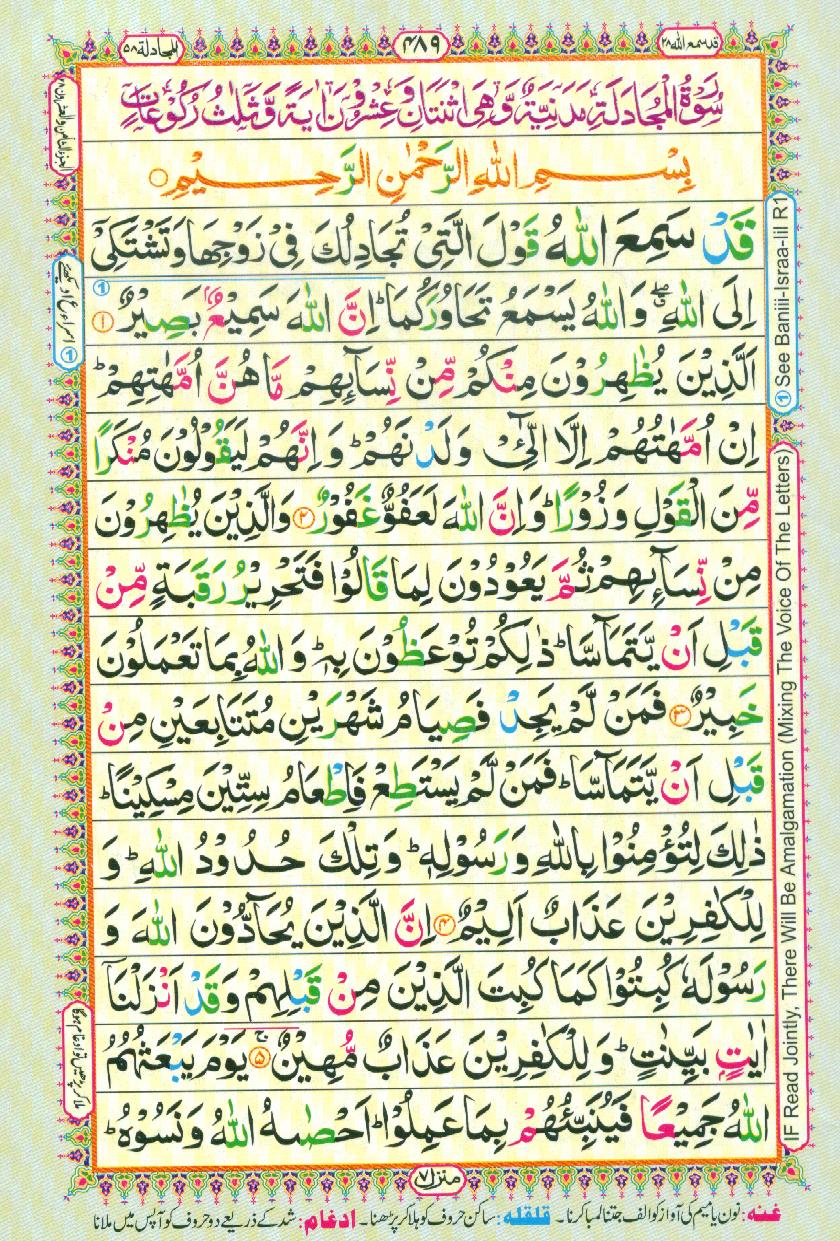 قدسمع الله ٢٨
٤٨٩
المجادلة ٥٨
سُوْرَةُ الْمُجَادَلَةِ مَدَنِيَّةٌ وَّهِيَ اثْنَتَانِ وَعِشْرُوْنَ اٰيَةً وَّثَلٰثُ رُكُوْعَاتٍ
بِسْمِ اللّٰهِ الرَّحْمٰنِ الرَّحِيْمِ
قَدْ سَمِعَ اللّٰهُ قَوْلَ الَّتِيْ تُجَادِلُكَ فِيْ زَوْجِهَا وَتَشْتَكِيْٓ
اِلَى اللّٰهِ ۖ وَاللّٰهُ يَسْمَعُ تَحَاوُرَكُمَا ؕ اِنَّ اللّٰهَ سَمِيْعٌۢ بَصِيْرٌ ①
اَلَّذِيْنَ يُظٰهِرُوْنَ مِنْكُمْ مِّنْ نِّسَآىِٕهِمْ مَّا هُنَّ اُمَّهٰتِهِمْ ؕ
اِنْ اُمَّهٰتُهُمْ اِلَّا الّٰٓـِٔيْ وَلَدْنَهُمْ ؕ وَاِنَّهُمْ لَيَقُوْلُوْنَ مُنْكَرًا
مِّنَ الْقَوْلِ وَزُوْرًا ؕ وَاِنَّ اللّٰهَ لَعَفُوٌّ غَفُوْرٌ ② وَالَّذِيْنَ يُظٰهِرُوْنَ
مِنْ نِّسَآىِٕهِمْ ثُمَّ يَعُوْدُوْنَ لِمَا قَالُوْا فَتَحْرِيْرُ رَقَبَةٍ مِّنْ
قَبْلِ اَنْ يَّتَمَآسَّا ؕ ذٰلِكُمْ تُوْعَظُوْنَ بِهٖ ؕ وَاللّٰهُ بِمَا تَعْمَلُوْنَ
خَبِيْرٌ ③ فَمَنْ لَّمْ يَجِدْ فَصِيَامُ شَهْرَيْنِ مُتَتَابِعَيْنِ مِنْ
قَبْلِ اَنْ يَّتَمَآسَّا ؕ فَمَنْ لَّمْ يَسْتَطِعْ فَاِطْعَامُ سِتِّيْنَ مِسْكِيْنًا ؕ
ذٰلِكَ لِتُؤْمِنُوْا بِاللّٰهِ وَرَسُوْلِهٖ ؕ وَتِلْكَ حُدُوْدُ اللّٰهِ ؕ وَ
لِلْكٰفِرِيْنَ عَذَابٌ اَلِيْمٌ ④ اِنَّ الَّذِيْنَ يُحَآدُّوْنَ اللّٰهَ وَ
رَسُوْلَهٗ كُبِتُوْا كَمَا كُبِتَ الَّذِيْنَ مِنْ قَبْلِهِمْ وَقَدْ اَنْزَلْنَآ
اٰيٰتٍۭ بَيِّنٰتٍ ؕ وَلِلْكٰفِرِيْنَ عَذَابٌ مُّهِيْنٌ ۚ ⑤ يَوْمَ يَبْعَثُهُمُ
اللّٰهُ جَمِيْعًا فَيُنَبِّئُهُمْ بِمَا عَمِلُوْا ؕ اَحْصٰىهُ اللّٰهُ وَنَسُوْهُ ؕ
① See Baniii-Israa-iil R1
IF Read Jointly, There Will Be Amalgamation (Mixing The Voice Of The Letters)
منزل ٧
غنه: نون یا میم کی آواز کو الف جتنا لمبا کرنا۔ قلقله: ساکن حروف کو ہلا کر پڑھنا۔ ادغام: شد کے ذریعے دو حروف کو آپس میں ملانا